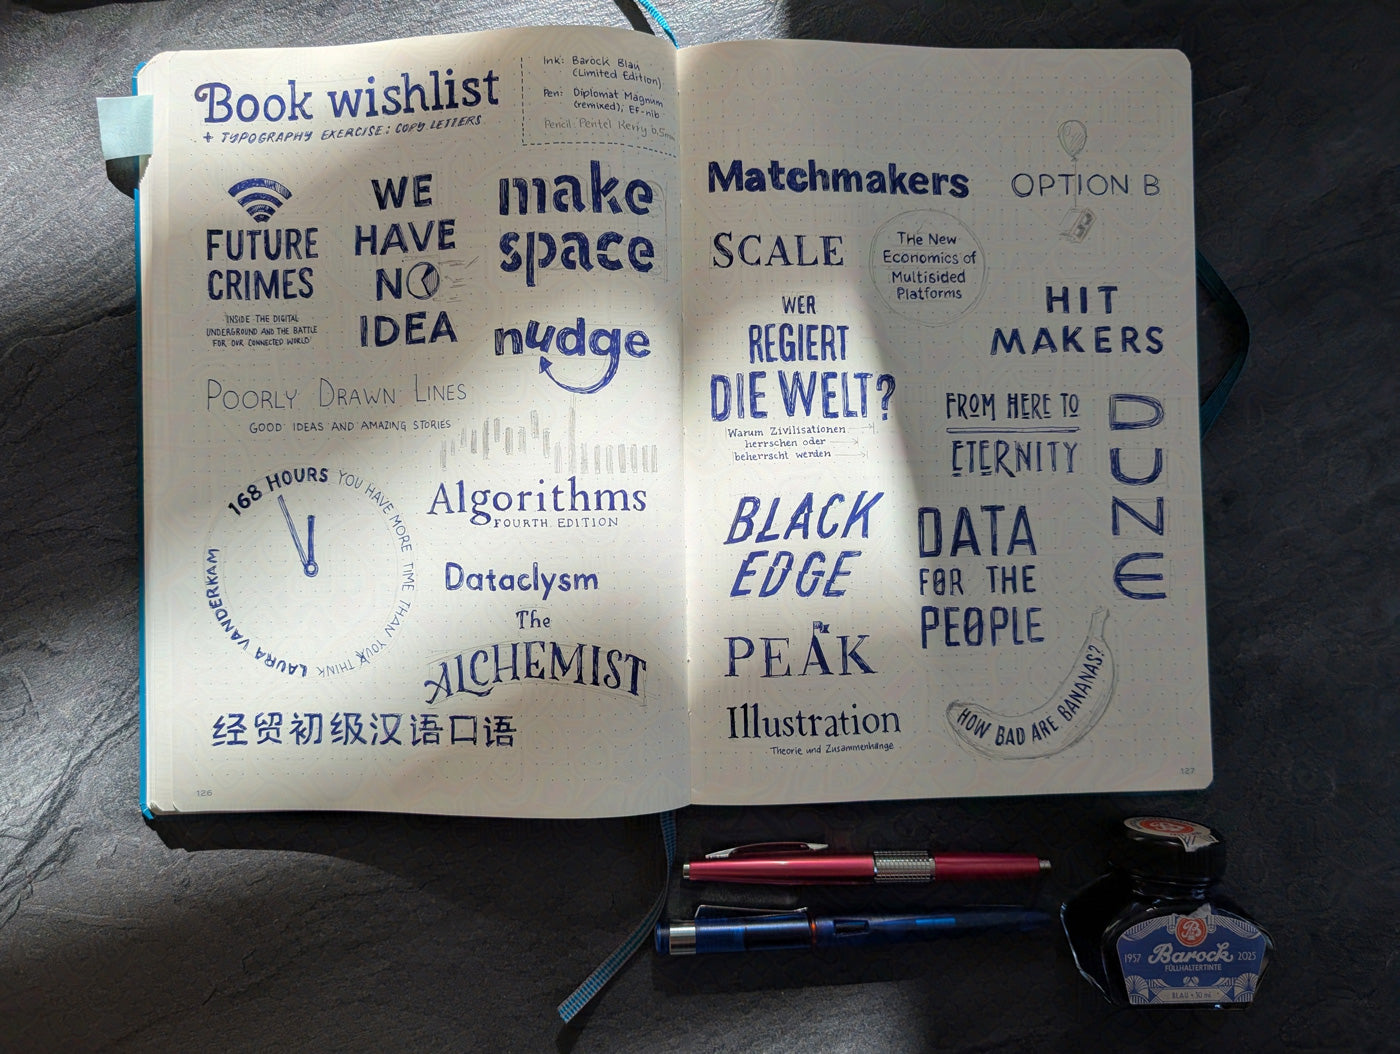 Book wishlist
+ TYPOGRAPHY EXERCISE: COPY LETTERS
Ink: Barock Blau
(Limited Edition)
Pen: Diplomat Magnum
(remixed); EF-nib
Pencil: Pentel Kerry 0,5mm
FUTURE
CRIMES
INSIDE THE DIGITAL
UNDERGROUND AND THE BATTLE
FOR OUR CONNECTED WORLD
WE
HAVE
NO
IDEA
make
space
nudge
POORLY DRAWN LINES
GOOD IDEAS AND AMAZING STORIES
168 HOURS YOU HAVE MORE TIME THAN YOU THINK LAURA VANDERKAM
Algorithms
FOURTH EDITION
Dataclysm
The
ALCHEMIST
经贸初级汉语口语
126
Matchmakers
The New
Economics of
Multisided
Platforms
OPTION B
SCALE
HIT
MAKERS
WER
REGIERT
DIE WELT?
Warum Zivilisationen
herrschen oder
beherrscht werden
FROM HERE TO
ETERNITY
DUNE
BLACK
EDGE
DATA
FOR THE
PEOPLE
PEAK
HOW BAD ARE BANANAS?
Illustration
Theorie und Zusammenhänge
127
1957 Barock 2025
FÜLLHALTERTINTE
BLAU • 30 ml